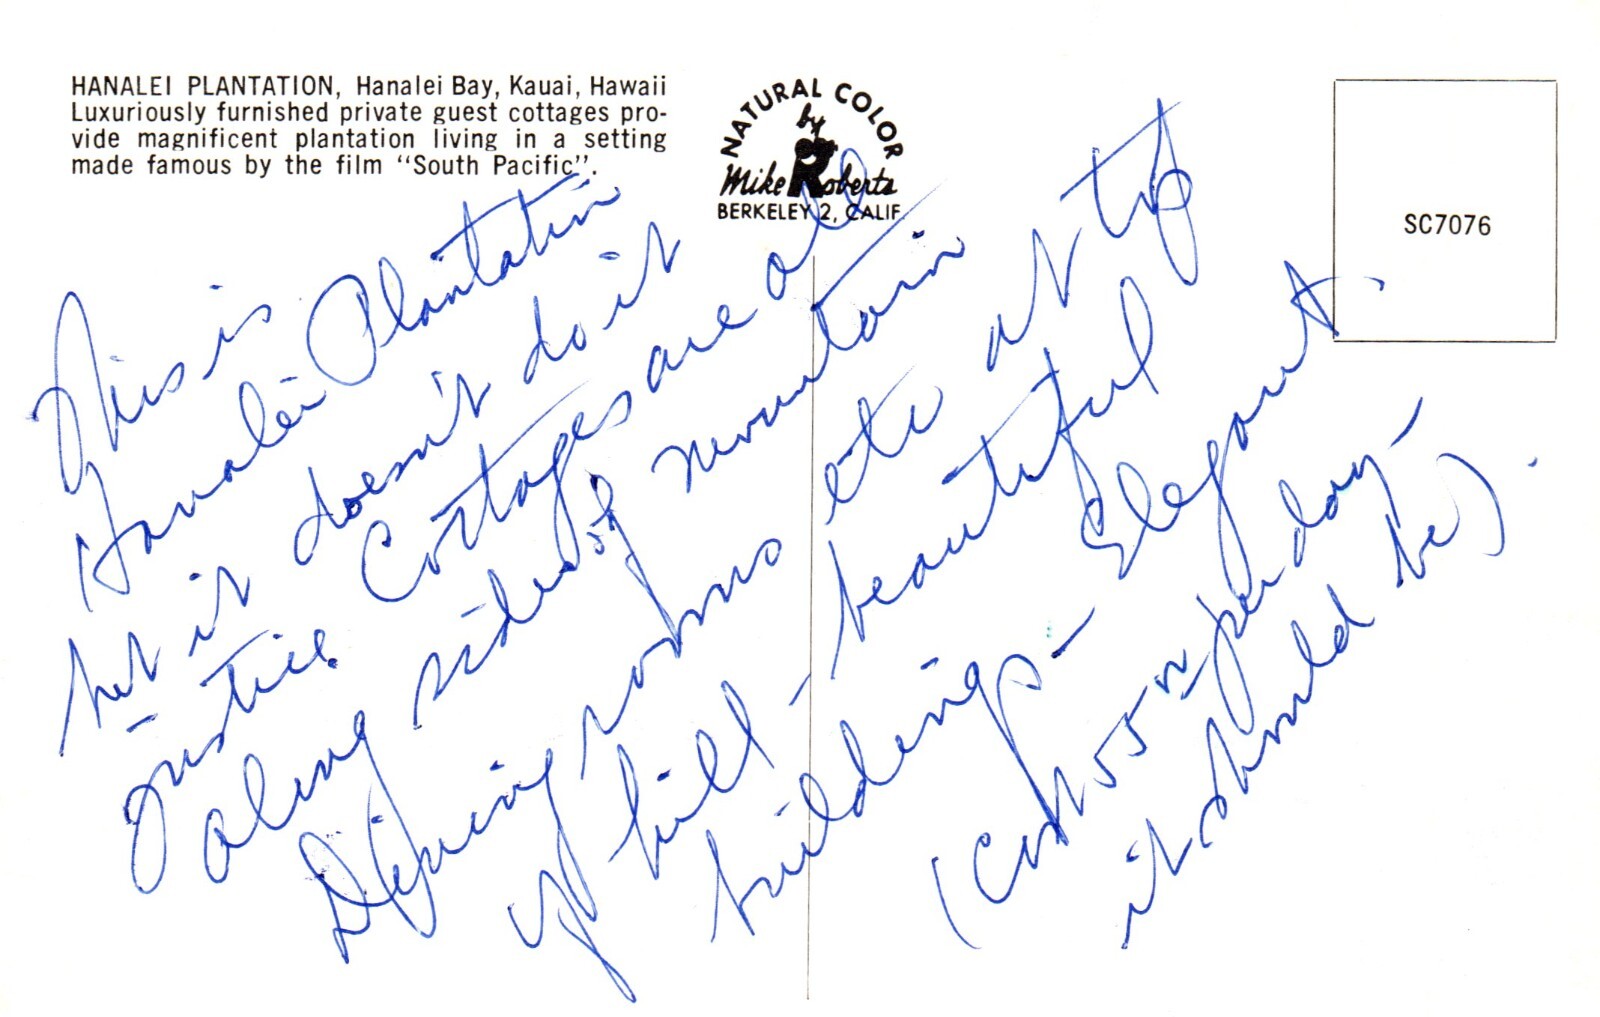 HANALEI PLANTATION, Hanalei Bay, Kauai, Hawaii
Luxuriously furnished private guest cottages pro-
vide magnificent plantation living in a setting
made famous by the film "South Pacific".
NATURAL COLOR
by
Mike Roberts
BERKELEY 2, CALIF.
SC7076
This is
Hanalei Plantation
but it doesn't do it
justice. Cottages are all
along side of mountain
Dining rooms etc at top
of hill - beautiful
buildings - Elegant.
(Cost 55 per day -
it should be).